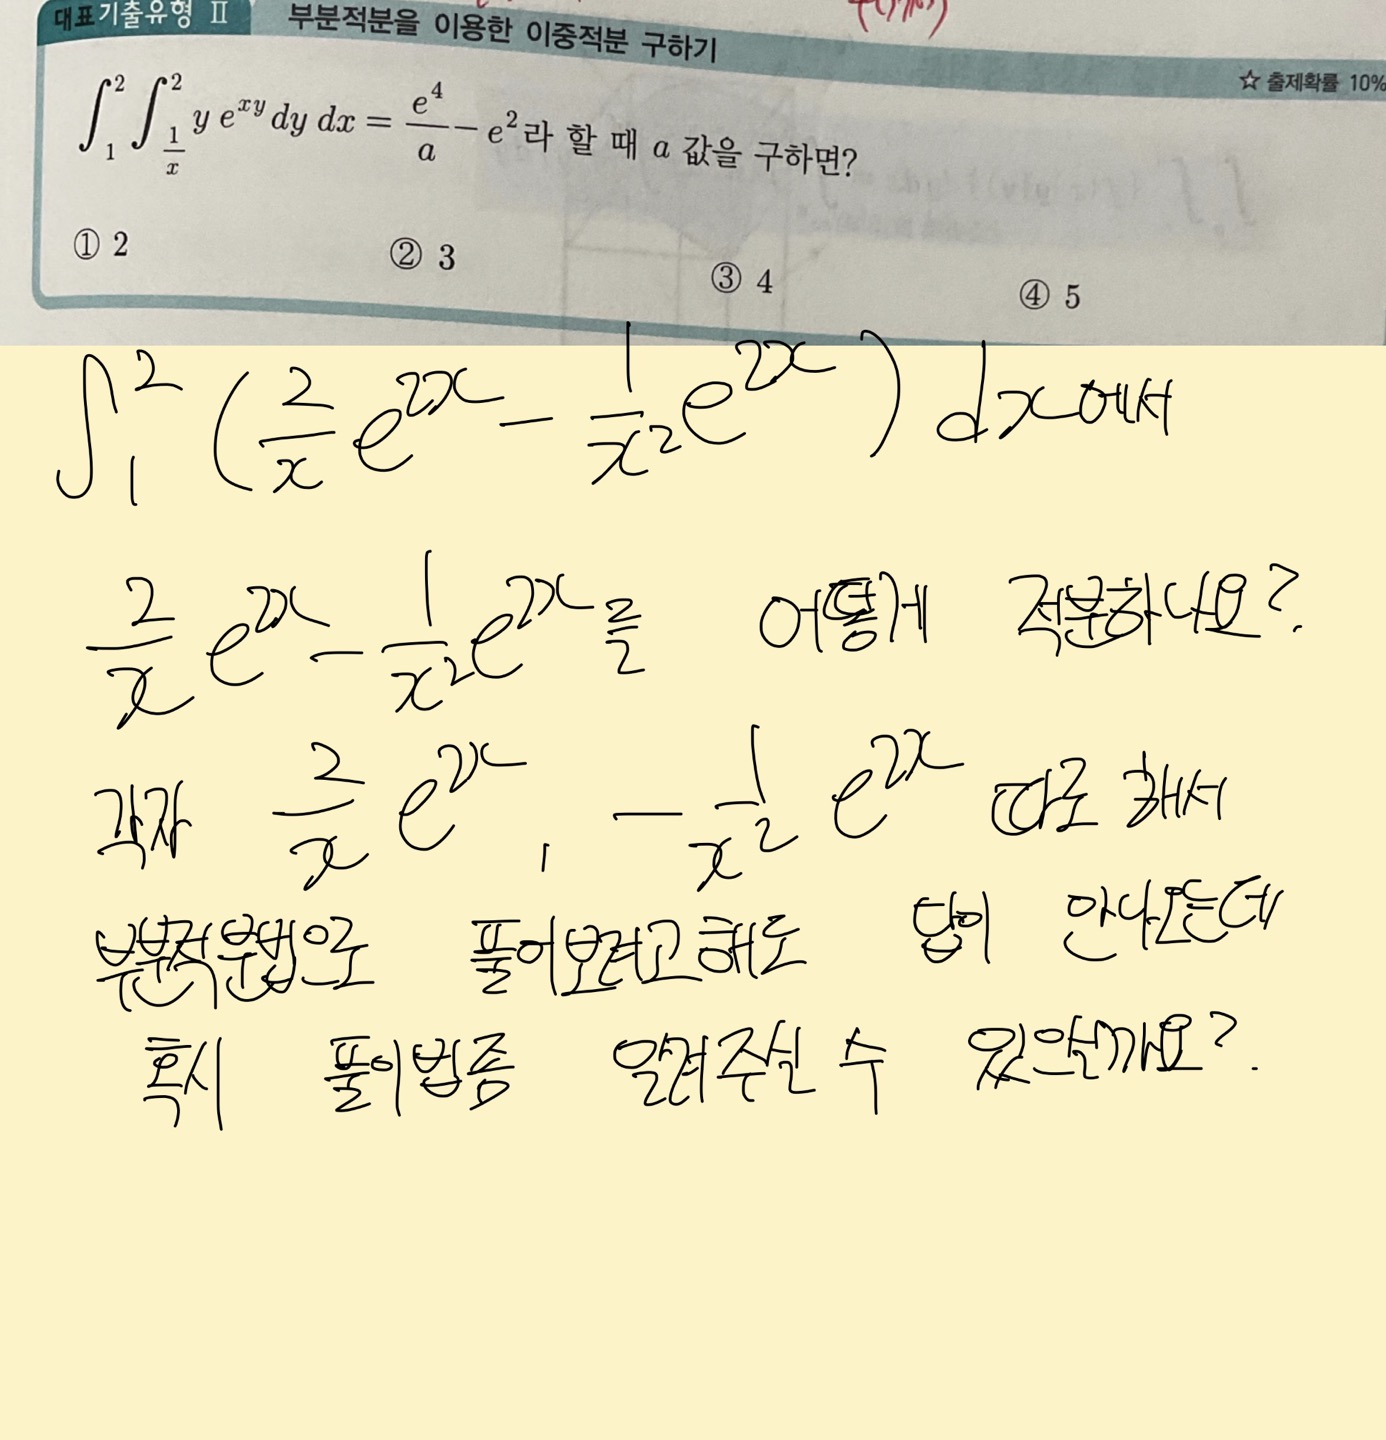 대표기출유형 Ⅱ 부분적분을 이용한 이중적분 구하기
☆ 출제확률 10%
∫₁² ∫_{1/x}² y e^{xy} dy dx = e⁴/a − e² 라 할 때 a 값을 구하면?
① 2 ② 3 ③ 4 ④ 5
∫₁² (2/x e^{2x} − 1/x² e^{2x}) dx에서
2/x e^{2x} − 1/x² e^{2x}를 어떻게 적분하나요?
각자 2/x e^{2x}, − 1/x² e^{2x} 따로 해서
부분적분법으로 풀어보려고해도 답이 안나오는데
혹시 풀이법좀 알려주실 수 있을까요?